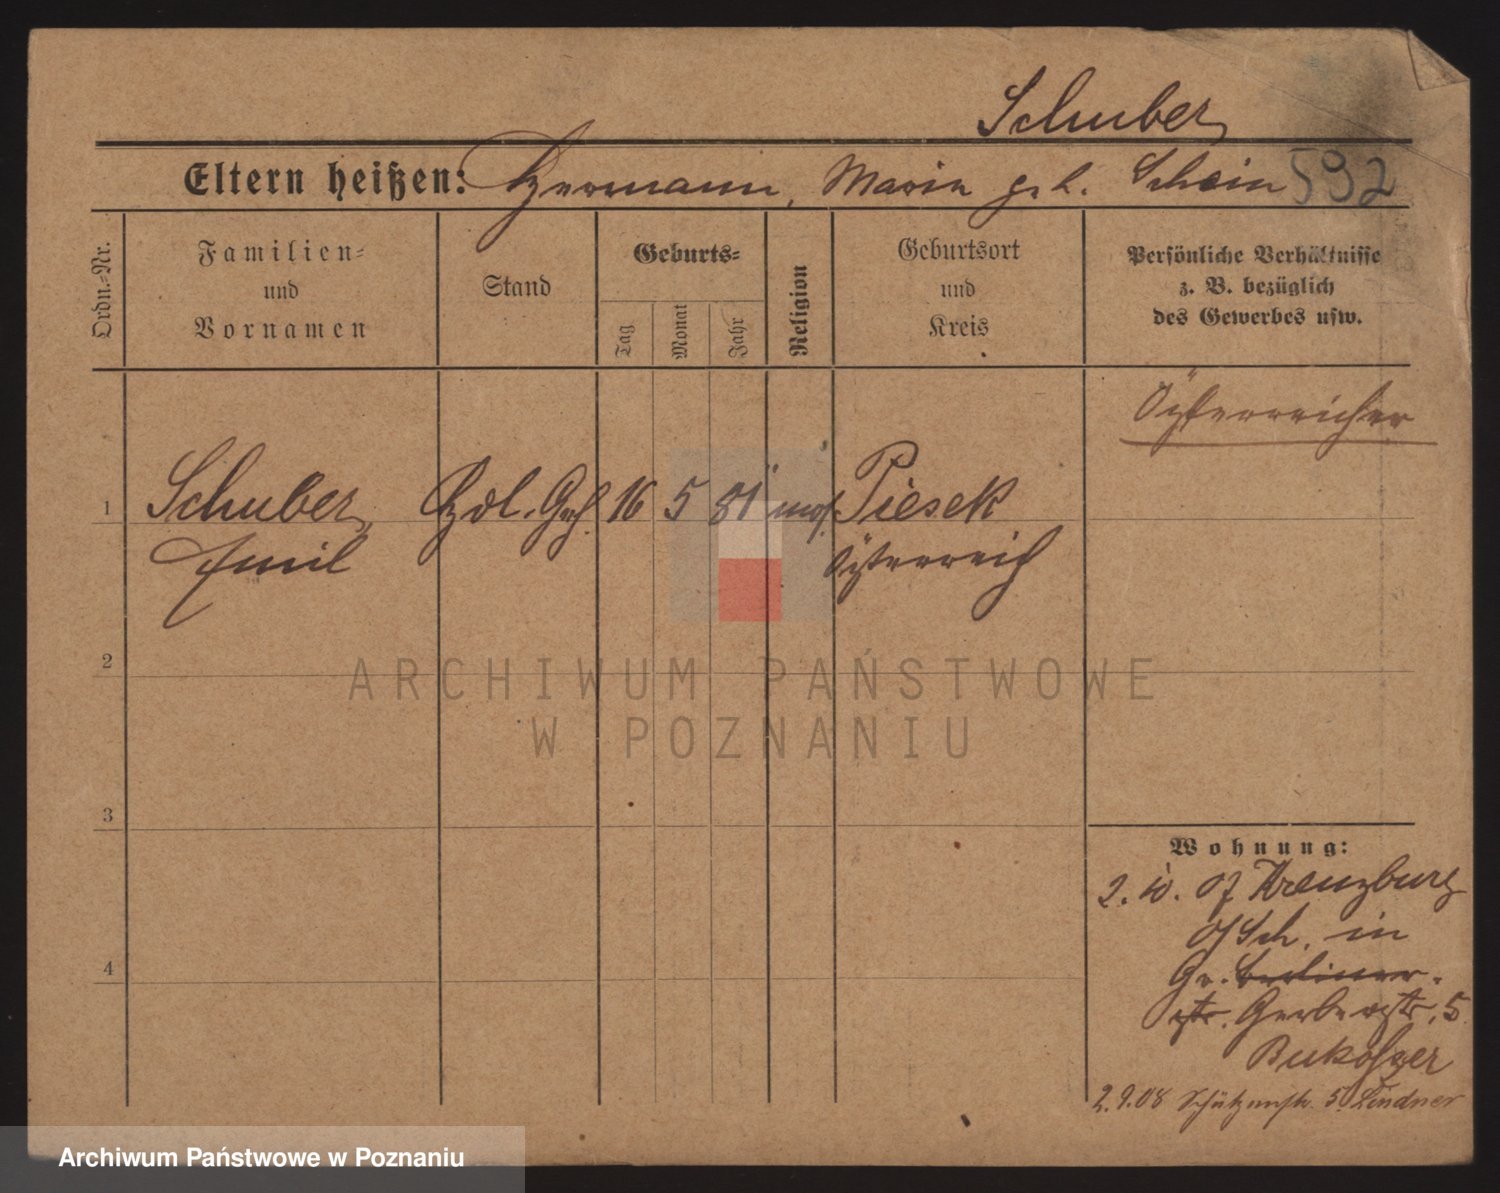 Schuber,
Eltern heißen: Hermann, Marie geb. Schein 592
Ordn.-Nr.
Familien-
und
Vornamen
Stand
Geburts-
Tag
Monat
Jahr
Religion
Geburtsort
und
Kreis
Persönliche Verhältnisse
z. B. bezüglich
des Gewerbes usw.
Österreicher
1 Schuber, Hdl. Geh. 16 5 81 mos. Piesek
Emil Österreich
2
3
4
ARCHIWUM PAŃSTWOWE
W POZNANIU
Wohnung:
2. 10. 07 Kreuzburg
O/Sch. in
Gr. Berliner-
str. Gerberstr. 5
2.9.08 Schützenstr. 5 Lindner
Archiwum Państwowe w Poznaniu